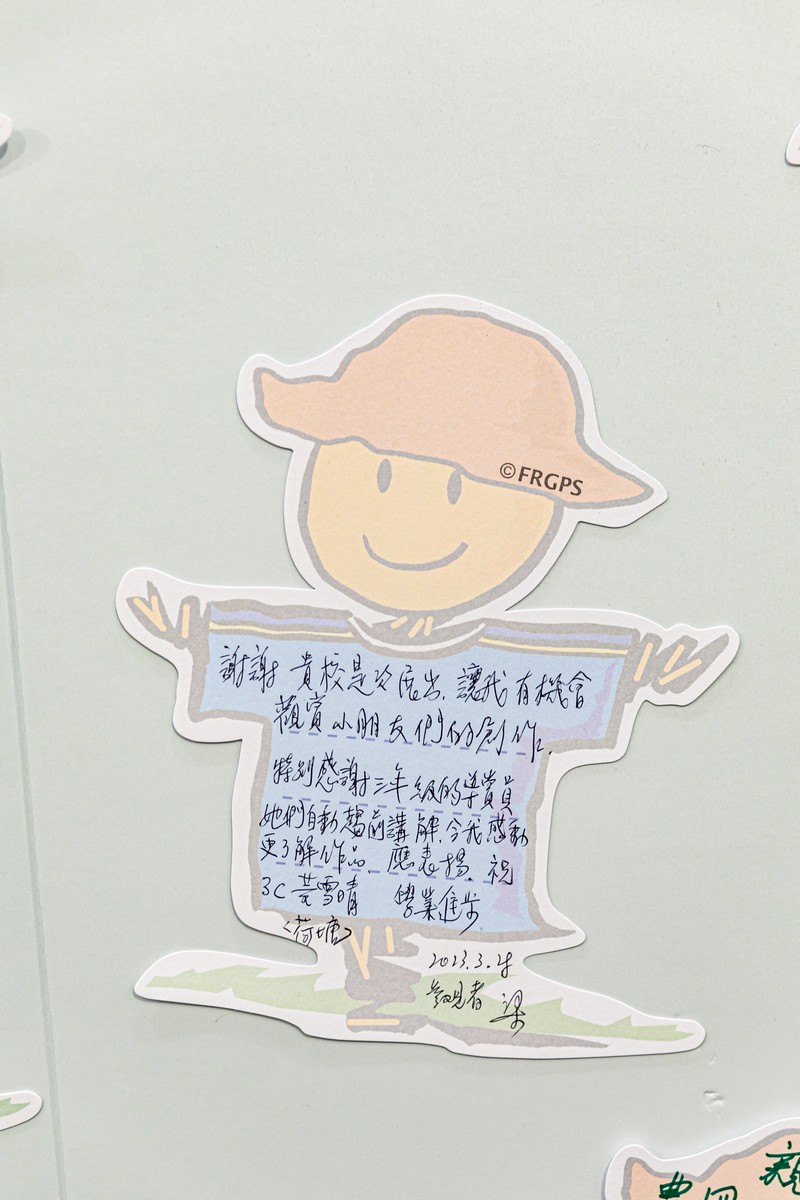 ©FRGPS
謝謝 貴校是次展出,讓我有機會
觀賞小朋友們的創作.
特別感謝三年級的導賞員
她們自動趨前講解,令我感動
更了解作品,應表揚. 祝
3C 芸雪晴 學業進步
<荷塘>
2023.3.28
參觀者 梁